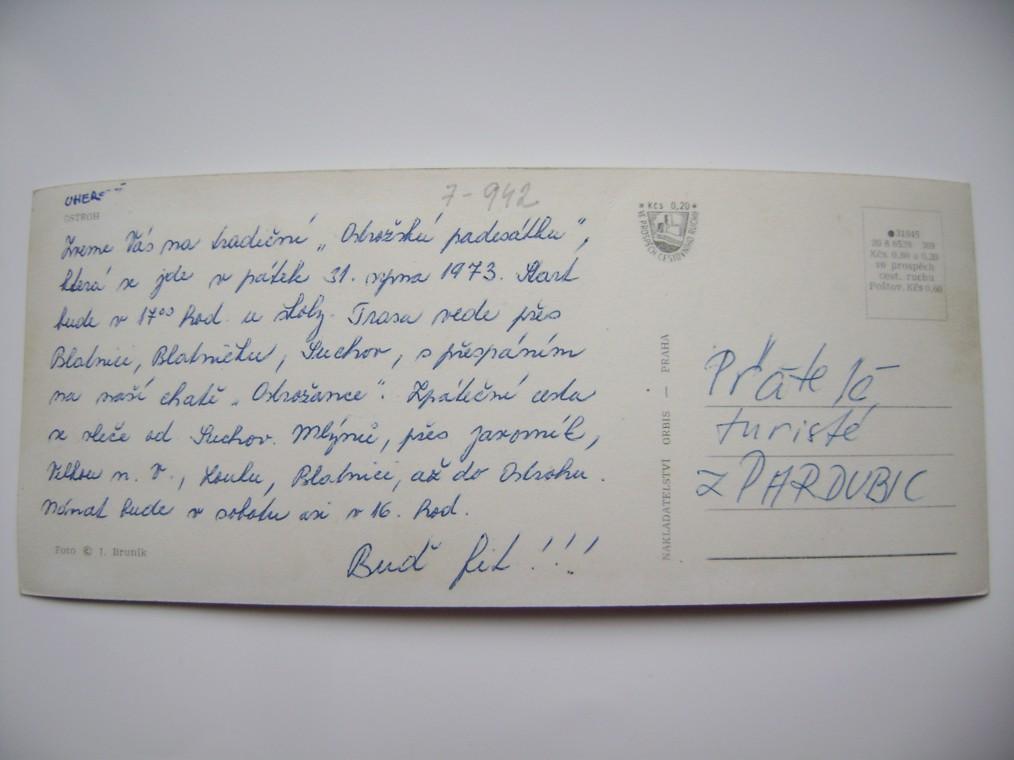 7-942
OSTROH
Zveme Vás na tradiční „Ostrožskú padesátku",
která se jde v pátek 31. srpna 1973. Start
bude v 17⁰⁰ hod. u školy. Trasa vede přes
Blatnici, Blatničku, Suchov, s přespáním
na naší chatě „Ostrožance". Zpáteční cesta
se vleče od Suchov. Mlýnů, přes Javorník,
Velkou n. V., Louku, Blatnici, až do Ostrohu.
Návrat bude v sobotu asi v 16. hod.
Buď fit!!!
Foto © J. Bruník
* Kčs 0,20 *
VE PROSPĚCH CESTOVNÍHO RUCHU
NAKLADATELSTVÍ ORBIS — PRAHA
Kčs 0,80 a 0,20
ve prospěch
cest. ruchu
Poštov. Kčs 0,60
Přátelé
turisté
z PARDUBIC